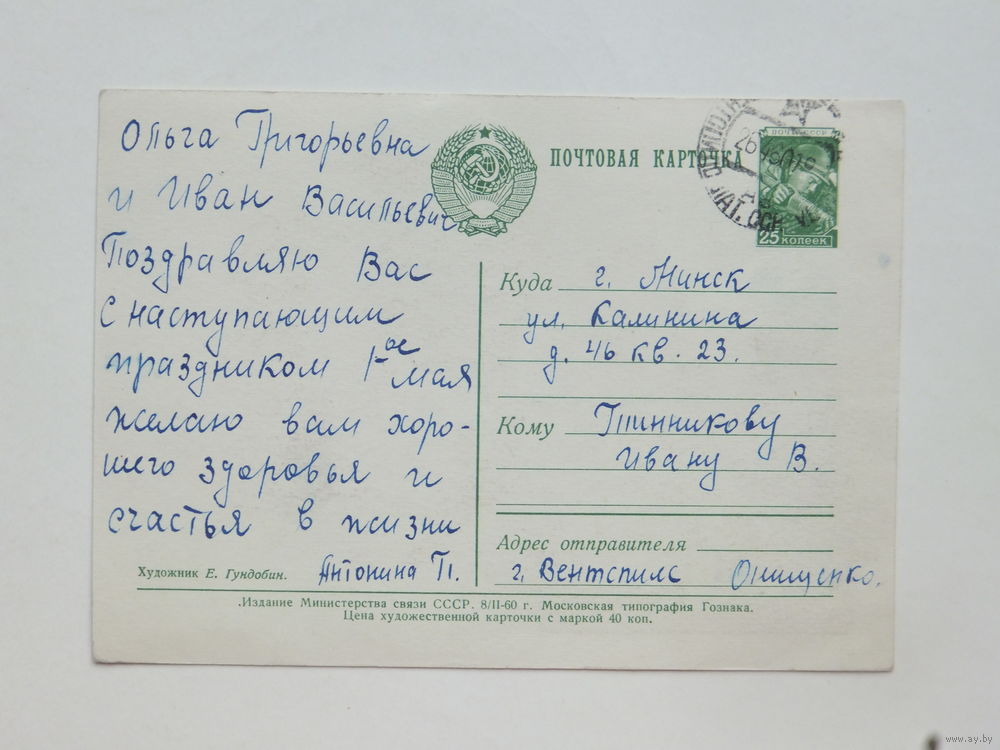 Ольга Григорьевна
и Иван Васильевич
Поздравляю Вас
С наступающим
праздником 1-ое мая
желаю вам хоро-
шего здоровья и
счастья в жизни
Антонина П.
Художник Е. Гундобин.
ПОЧТОВАЯ КАРТОЧКА
ПОЧТА СССР
25 копеек
ЛАТ. ССР
Куда г. Минск
ул. Калинина
д. 46 кв. 23.
Кому Тинникову
Ивану В.
Адрес отправителя
г. Вентспилс Онищенко.
Издание Министерства связи СССР. 8/II-60 г. Московская типография Гознака.
Цена художественной карточки с маркой 40 коп.
www.ay.by